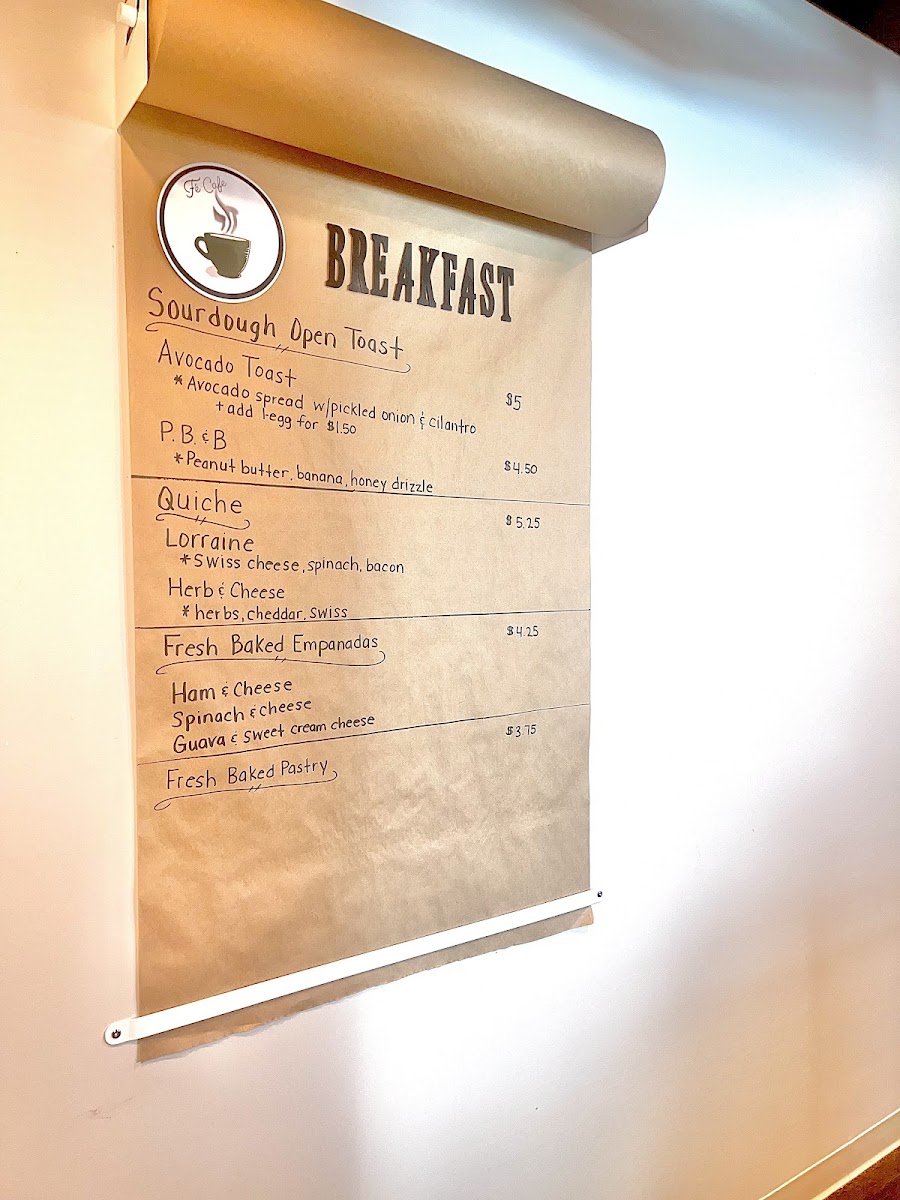 Fé Café
BREAKFAST
Sourdough Open Toast
Avocado Toast $5
*Avocado spread w/pickled onion & cilantro
+add 1-egg for $1.50
P.B. & B $4.50
*Peanut butter, banana, honey drizzle
Quiche $5.25
Lorraine
*Swiss cheese, spinach, bacon
Herb & Cheese
*herbs, cheddar, swiss
Fresh Baked Empanadas $4.25
Ham & Cheese
Spinach & Cheese
Guava & sweet cream cheese
Fresh Baked Pastry $3.75